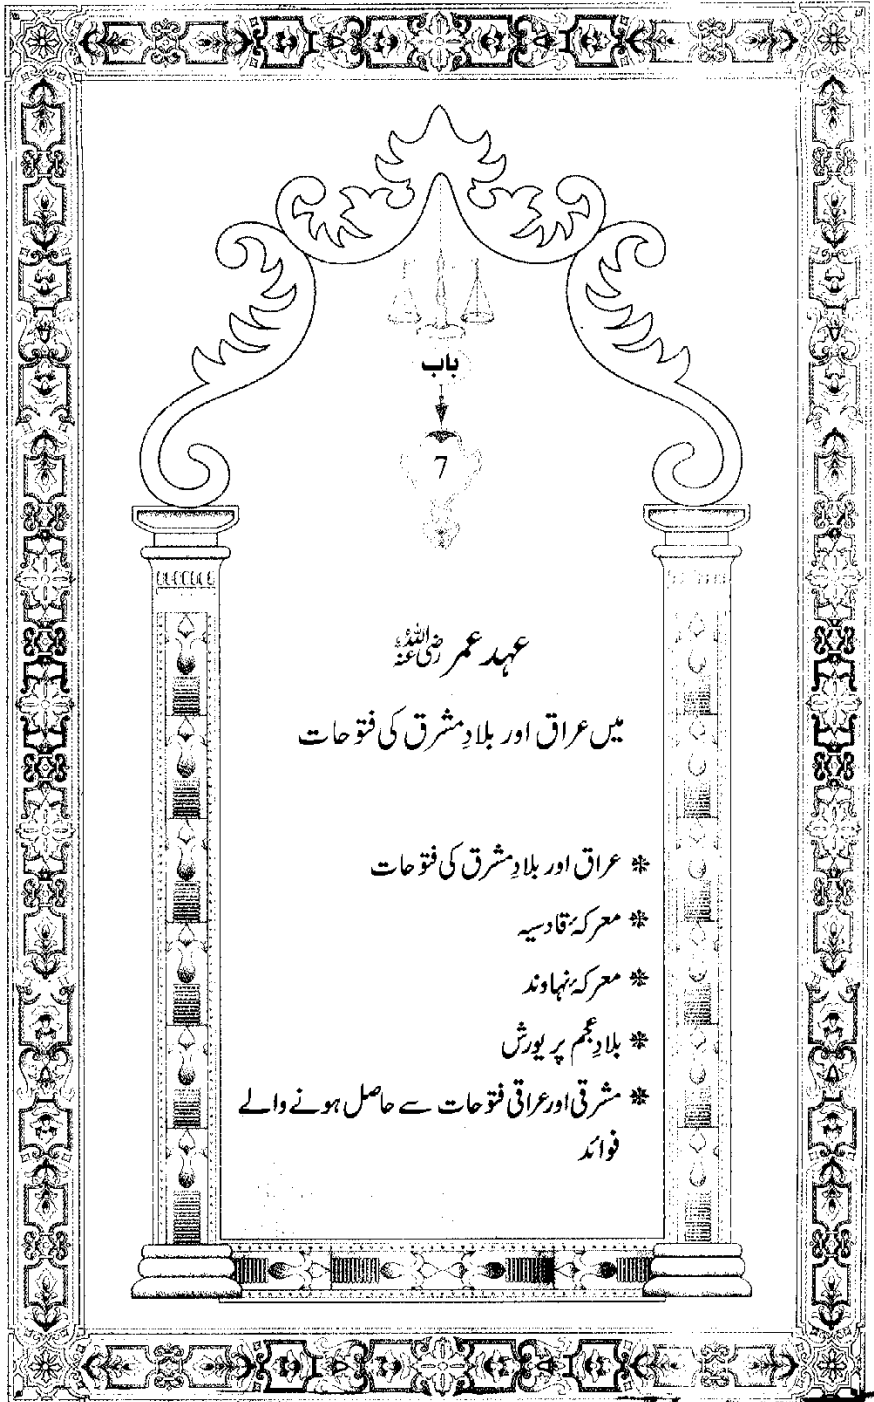 باب
7
عہد عمر رضی اللہ عنہ
میں عراق اور بلادِ مشرق کی فتوحات
❋ عراق اور بلادِ مشرق کی فتوحات
❋ معرکۂ قادسیہ
❋ معرکۂ نہاوند
❋ بلادِ عجم پر یورش
❋ مشرقی اور عراقی فتوحات سے حاصل ہونے والے
فوائد